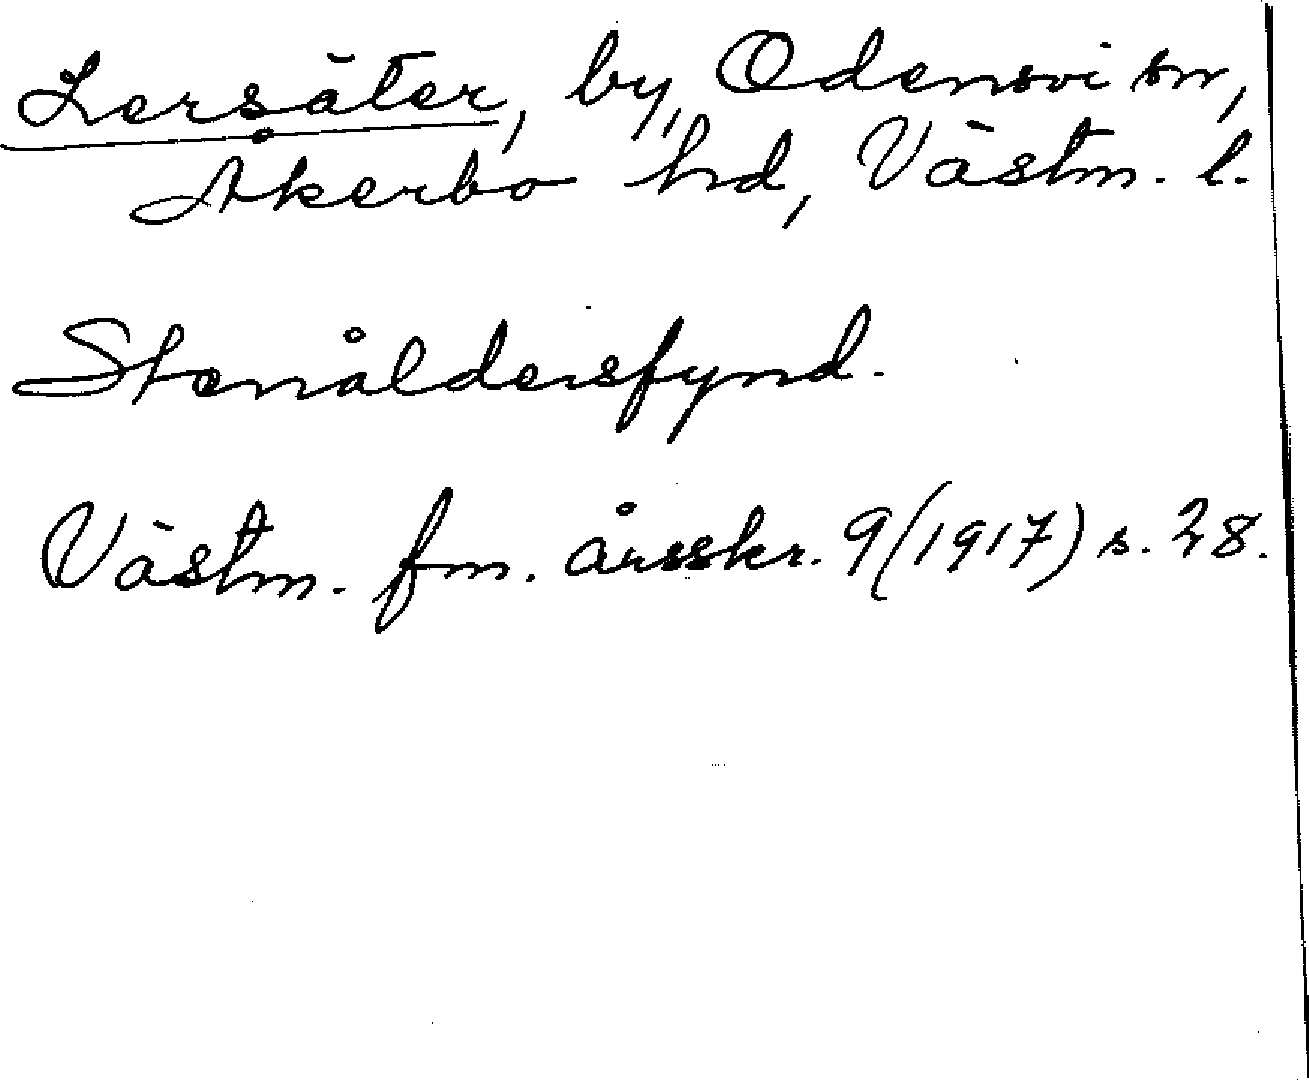 Lersäter, by, Odensvi sn,
Åkerbo hd, Västm. l.
Stenåldersfynd.
Västm. fm. årsskr. 9 (1917) s. 28.